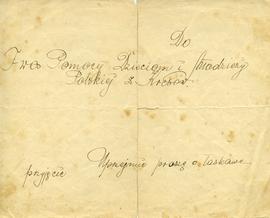 Do
T-wa Pomocy Dzieciom i Młodzieży
Polskiej z Kresów
Uprzejmie proszę o łaskawe
przyjęcie